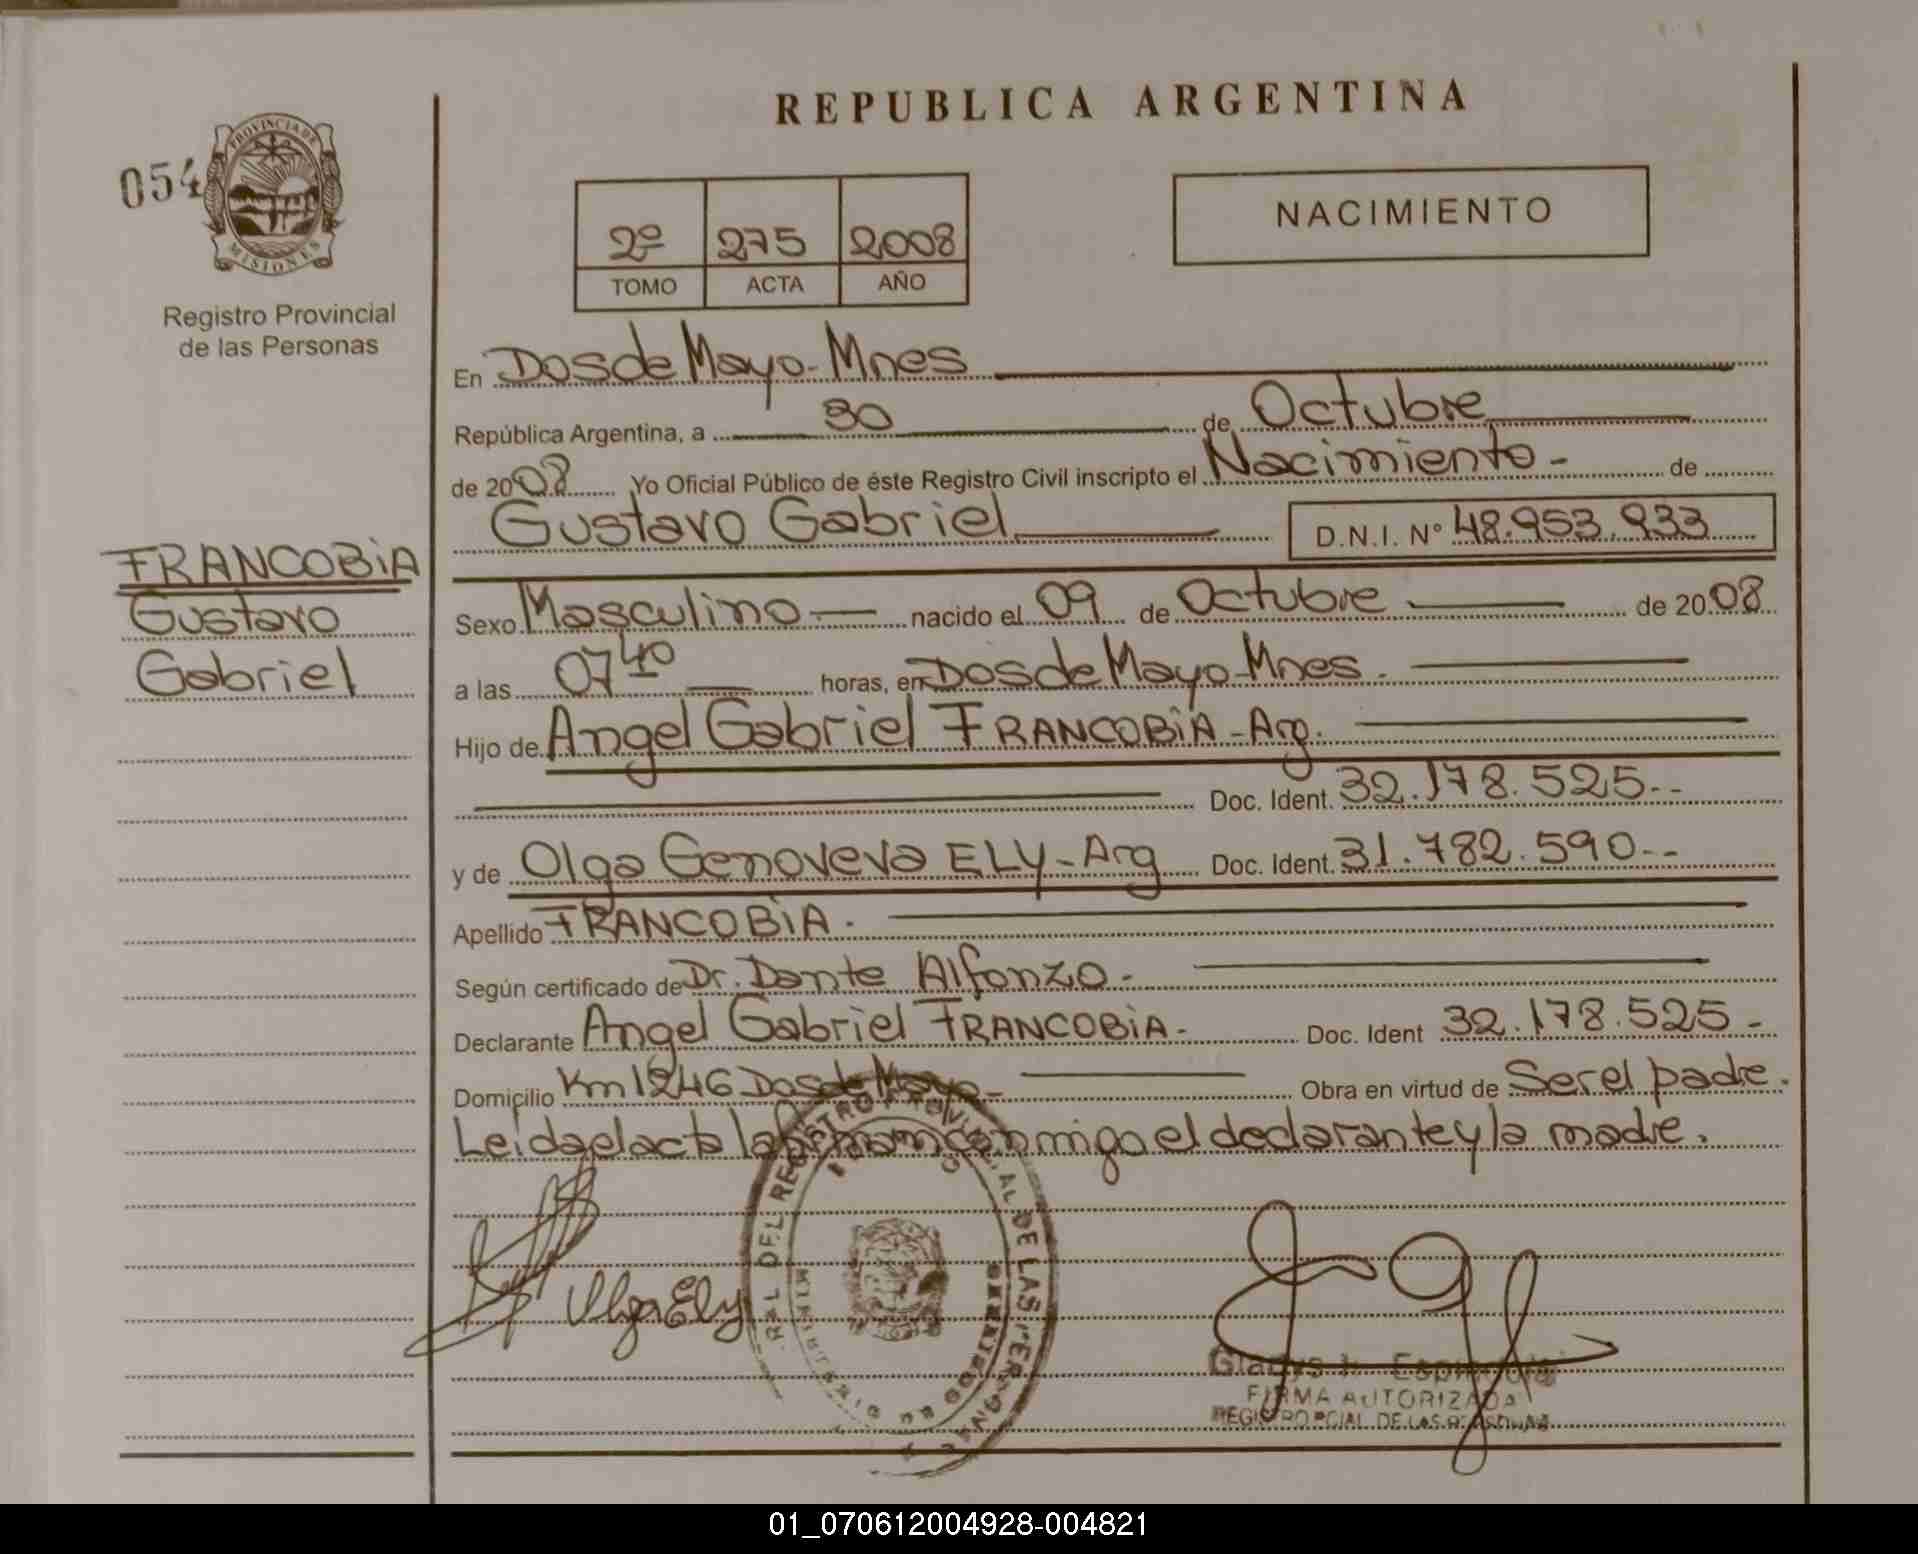 REPUBLICA ARGENTINA
054
PROVINCIA DE
MISIONES
Registro Provincial
de las Personas
2º 275 2008
TOMO ACTA AÑO
NACIMIENTO
FRANCOBIA
Gustavo
Gabriel
En Dos de Mayo - Mnes
República Argentina, a 30 de Octubre
de 2008 Yo Oficial Público de éste Registro Civil inscripto el Nacimiento - de
Gustavo Gabriel D.N.I. Nº 48.953.933
Sexo Masculino nacido el 09 de Octubre de 2008
a las 07 40 horas, en Dos de Mayo - Mnes.
Hijo de Angel Gabriel FRANCOBIA - Arg.
Doc. Ident. 32.178.525--
y de Olga Genoveva ELY - Arg Doc. Ident. 31.782.590--
Apellido FRANCOBIA.
Según certificado de Dr. Dante Alfonzo -
Declarante Angel Gabriel FRANCOBIA - Doc. Ident 32.178.525 -
Domicilio Km 1246 Dos de Mayo - Obra en virtud de Ser el padre.
Leida el acta la firman conmigo el declarante y la madre.
Olga Ely
DEL REGISTRO PROVINCIAL DE LAS PERSONAS
MINISTERIO DE GOBIERNO
Gladys
FIRMA AUTORIZADA
REGISTRO PCIAL. DE LAS PERSONAS
01_070612004928-004821